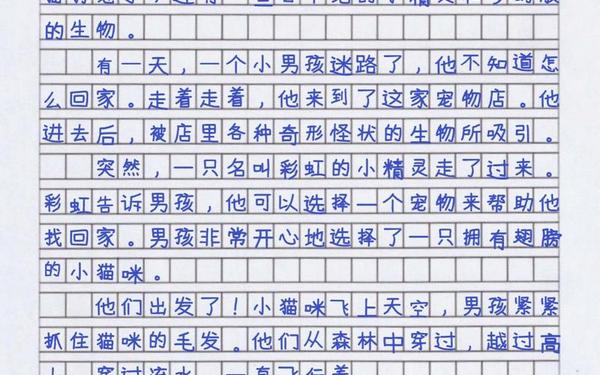 的生物。
有一天，一个小男孩迷路了，他不知道怎
么回家。走着走着，他来到了这家宠物店。他
进去后，被店里各种奇形怪状的生物所吸引。
突然，一只名叫彩虹的小精灵走了过来。
彩虹告诉男孩，他可以选择一个宠物来帮助他
找回家。男孩非常开心地选择了一只拥有翅膀
的小猫咪。
他们出发了！小猫咪飞上天空，男孩紧紧
抓住猫咪的毛发。他们从森林中穿过，越过高